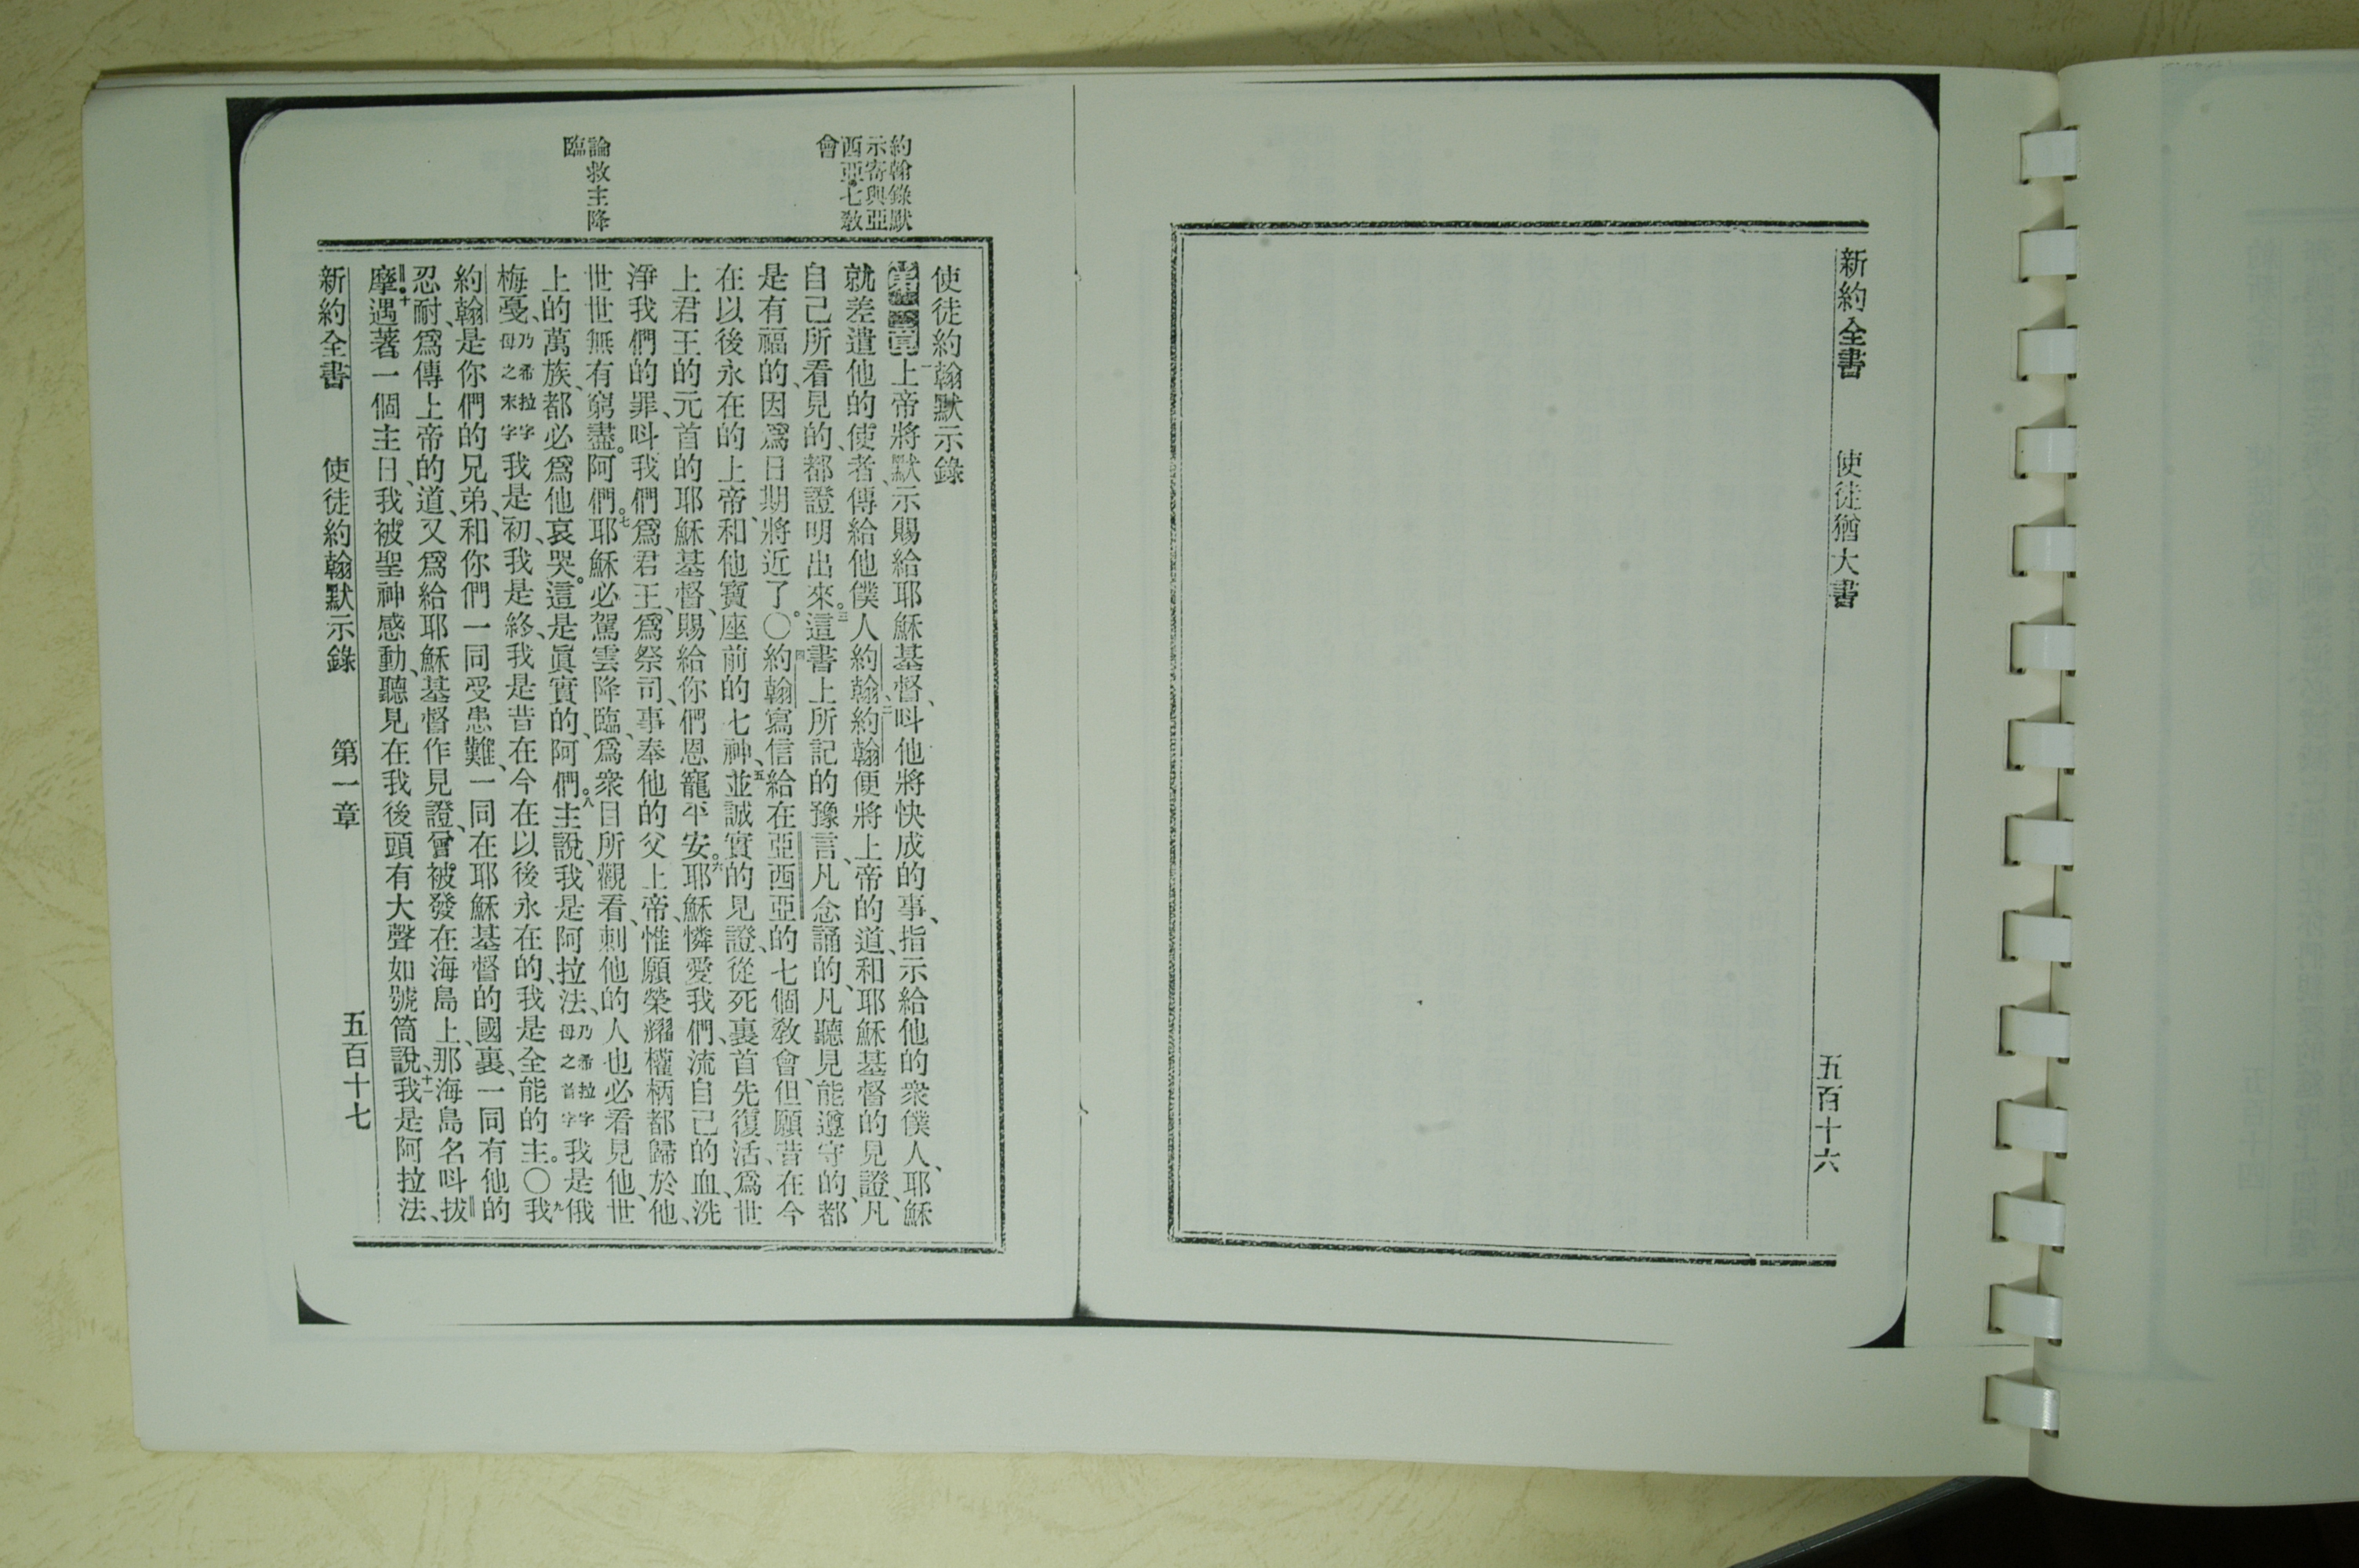 新約全書 使徒猶大書 五百十六
約翰錄默
示寄與亞
西亞七教
會
論救主降
臨
使徒約翰默示錄
第一章一上帝將默示賜給耶穌基督、呌他將快成的事、指示給他的衆僕人、耶穌
就差遣他的使者、傳給他僕人約翰、二約翰便將上帝的道、和耶穌基督的見證、凡
自己所看見的、都證明出來。三這書上所記的豫言、凡念誦的、凡聽見能遵守的、都
是有福的、因爲日期將近了。〇四約翰寫信給在亞西亞的七個敎會、但願昔在今
在以後永在的上帝、和他寶座前的七神、五並誠實的見證、從死裏首先復活、爲世
上君王的元首的耶穌基督、賜給你們恩寵平安。六耶穌憐愛我們、流自己的血、洗
淨我們的罪、呌我們爲君王、爲祭司、事奉他的父上帝、惟願榮耀權柄都歸於他、
世世無有窮盡。阿們。七耶穌必駕雲降臨、爲衆目所觀看、刺他的人也必看見他、世
上的萬族、都必爲他哀哭。這是眞實的、阿們。八主說、我是阿拉法、乃希拉字母之首字我是俄
梅戞、乃希拉字母之末字我是初、我是終、我是昔在今在以後永在的、我是全能的主。〇九我
約翰是你們的兄弟、和你們一同受患難、一同在耶穌基督的國裏、一同有他的
忍耐、爲傳上帝的道、又爲給耶穌基督作見證、曾被發在海島上、那海島名呌拔
摩。十遇著一個主日、我被聖神感動、聽見在我後頭有大聲如號筒說、十一我是阿拉法、
新約全書 使徒約翰默示錄 第一章 五百十七